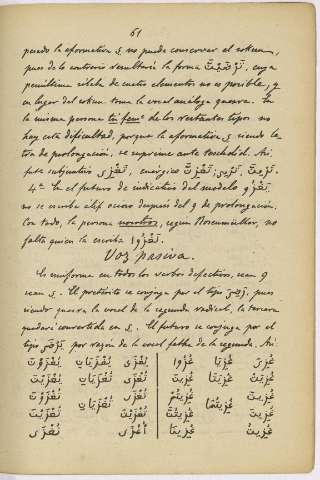 61
pesado la aformativa ي no puede conservar el sokun,
pues de lo contrario resultaría la forma , cuya
penúltima sílaba de cuatro elementos no es posible, y
en lugar del sokun toma la vocal análoga quesra. En
la misma persona tú fem.º de los restantes tipos no
hay esta dificultad, porque la aformativa ي siendo le-
tra de prolongación, se suprime ante texdid. Así
fute subjuntivo , enérgico
4.ª En el futuro de indicativo del modelo تَغْزُو
no se escribe alif ocioso después del و de prolongación.
Con todo, la persona nosotros, según Rosenmüller, no
falta quien la escriba نَغْزُوا
Voz pasiva.
Es uniforme en todos los verbos defectivos, sean و
sean ي. El pretérito se conjuga por el tipo رُضِيَ, pues
siendo quesra la vocal de la segunda radical, la tercera
quedará convertida en ي. El futuro se conjuga por el
tipo por razón de la vocal fatha de la segunda. Así
غُزِيَ غُزِيَا غُزُوا يُغْزَى يُغْزَيَانِ يُغْزَوْنَ
غُزِيَتْ غُزِيَتَا غُزِينَ تُغْزَى تُغْزَيَانِ يُغْزَيْنَ
غُزِيتَ غُزِيتُمَا غُزِيتُمْ تُغْزَى تُغْزَيَانِ تُغْزَوْنَ
غُزِيتِ غُزِيتُنَّ تُغْزَيْنَ تُغْزَيْنَ
غُزِيتُ غُزِينَا أُغْزَى نُغْزَى